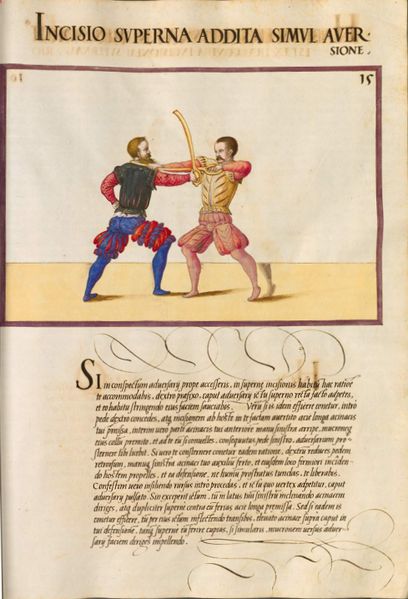 INCISIO SVPERNA ADDITA SIMVL AVER-
SIONE.
15
Si in conspectum adversarij prope accesseris, in supernę incisionis habitū hac ratiōe
te accommodabis, dextro praefixo, caput adversarij ictu superno recta facto adpetes,
et eo habitu stringendo eius faciem sauciabis. Verū si is idem efficere conetur, intro
pede dextro concedes, atq incisionem ab hoste in te factam averteto arce longa acinacis
tui praemissa, interim vero parti acinacis tui anteriore manu sinistra arripe, mucronēq
eius collū praemito, et ad te eū si convelles, consequutus pede sinistro, adversarium pro-
sternere libi licebit. Si vero te consternere conetur eadem ratione, dextrū reduces pedem
retrorsum, manuq sinistra acinaci tuo auxiliū ferto, et eiusdem loco firmiori inciden-
do hostem propelles, et ea defensione, ne humū prostratus tundas, te liberabis.
Confestim vero insistendo rursus intro procedas, et ictu quo vertex adpetitur, caput
adversarij pulsato. Sin exceperit ictum, tū in latus tuū sinistrū inclinando acinacem
diriges, atq dupliciter supernè contra eū ferias arce longa praemissa. Sed si eadem is
conetur efficere, tū per eius ictum inflectendo transibis, elevato acinace supra caput in
tui defensionem, tanq supernè eū ferire cupias, si simularis, mucronem versus adver-
sarij faciem diriges impellendo.